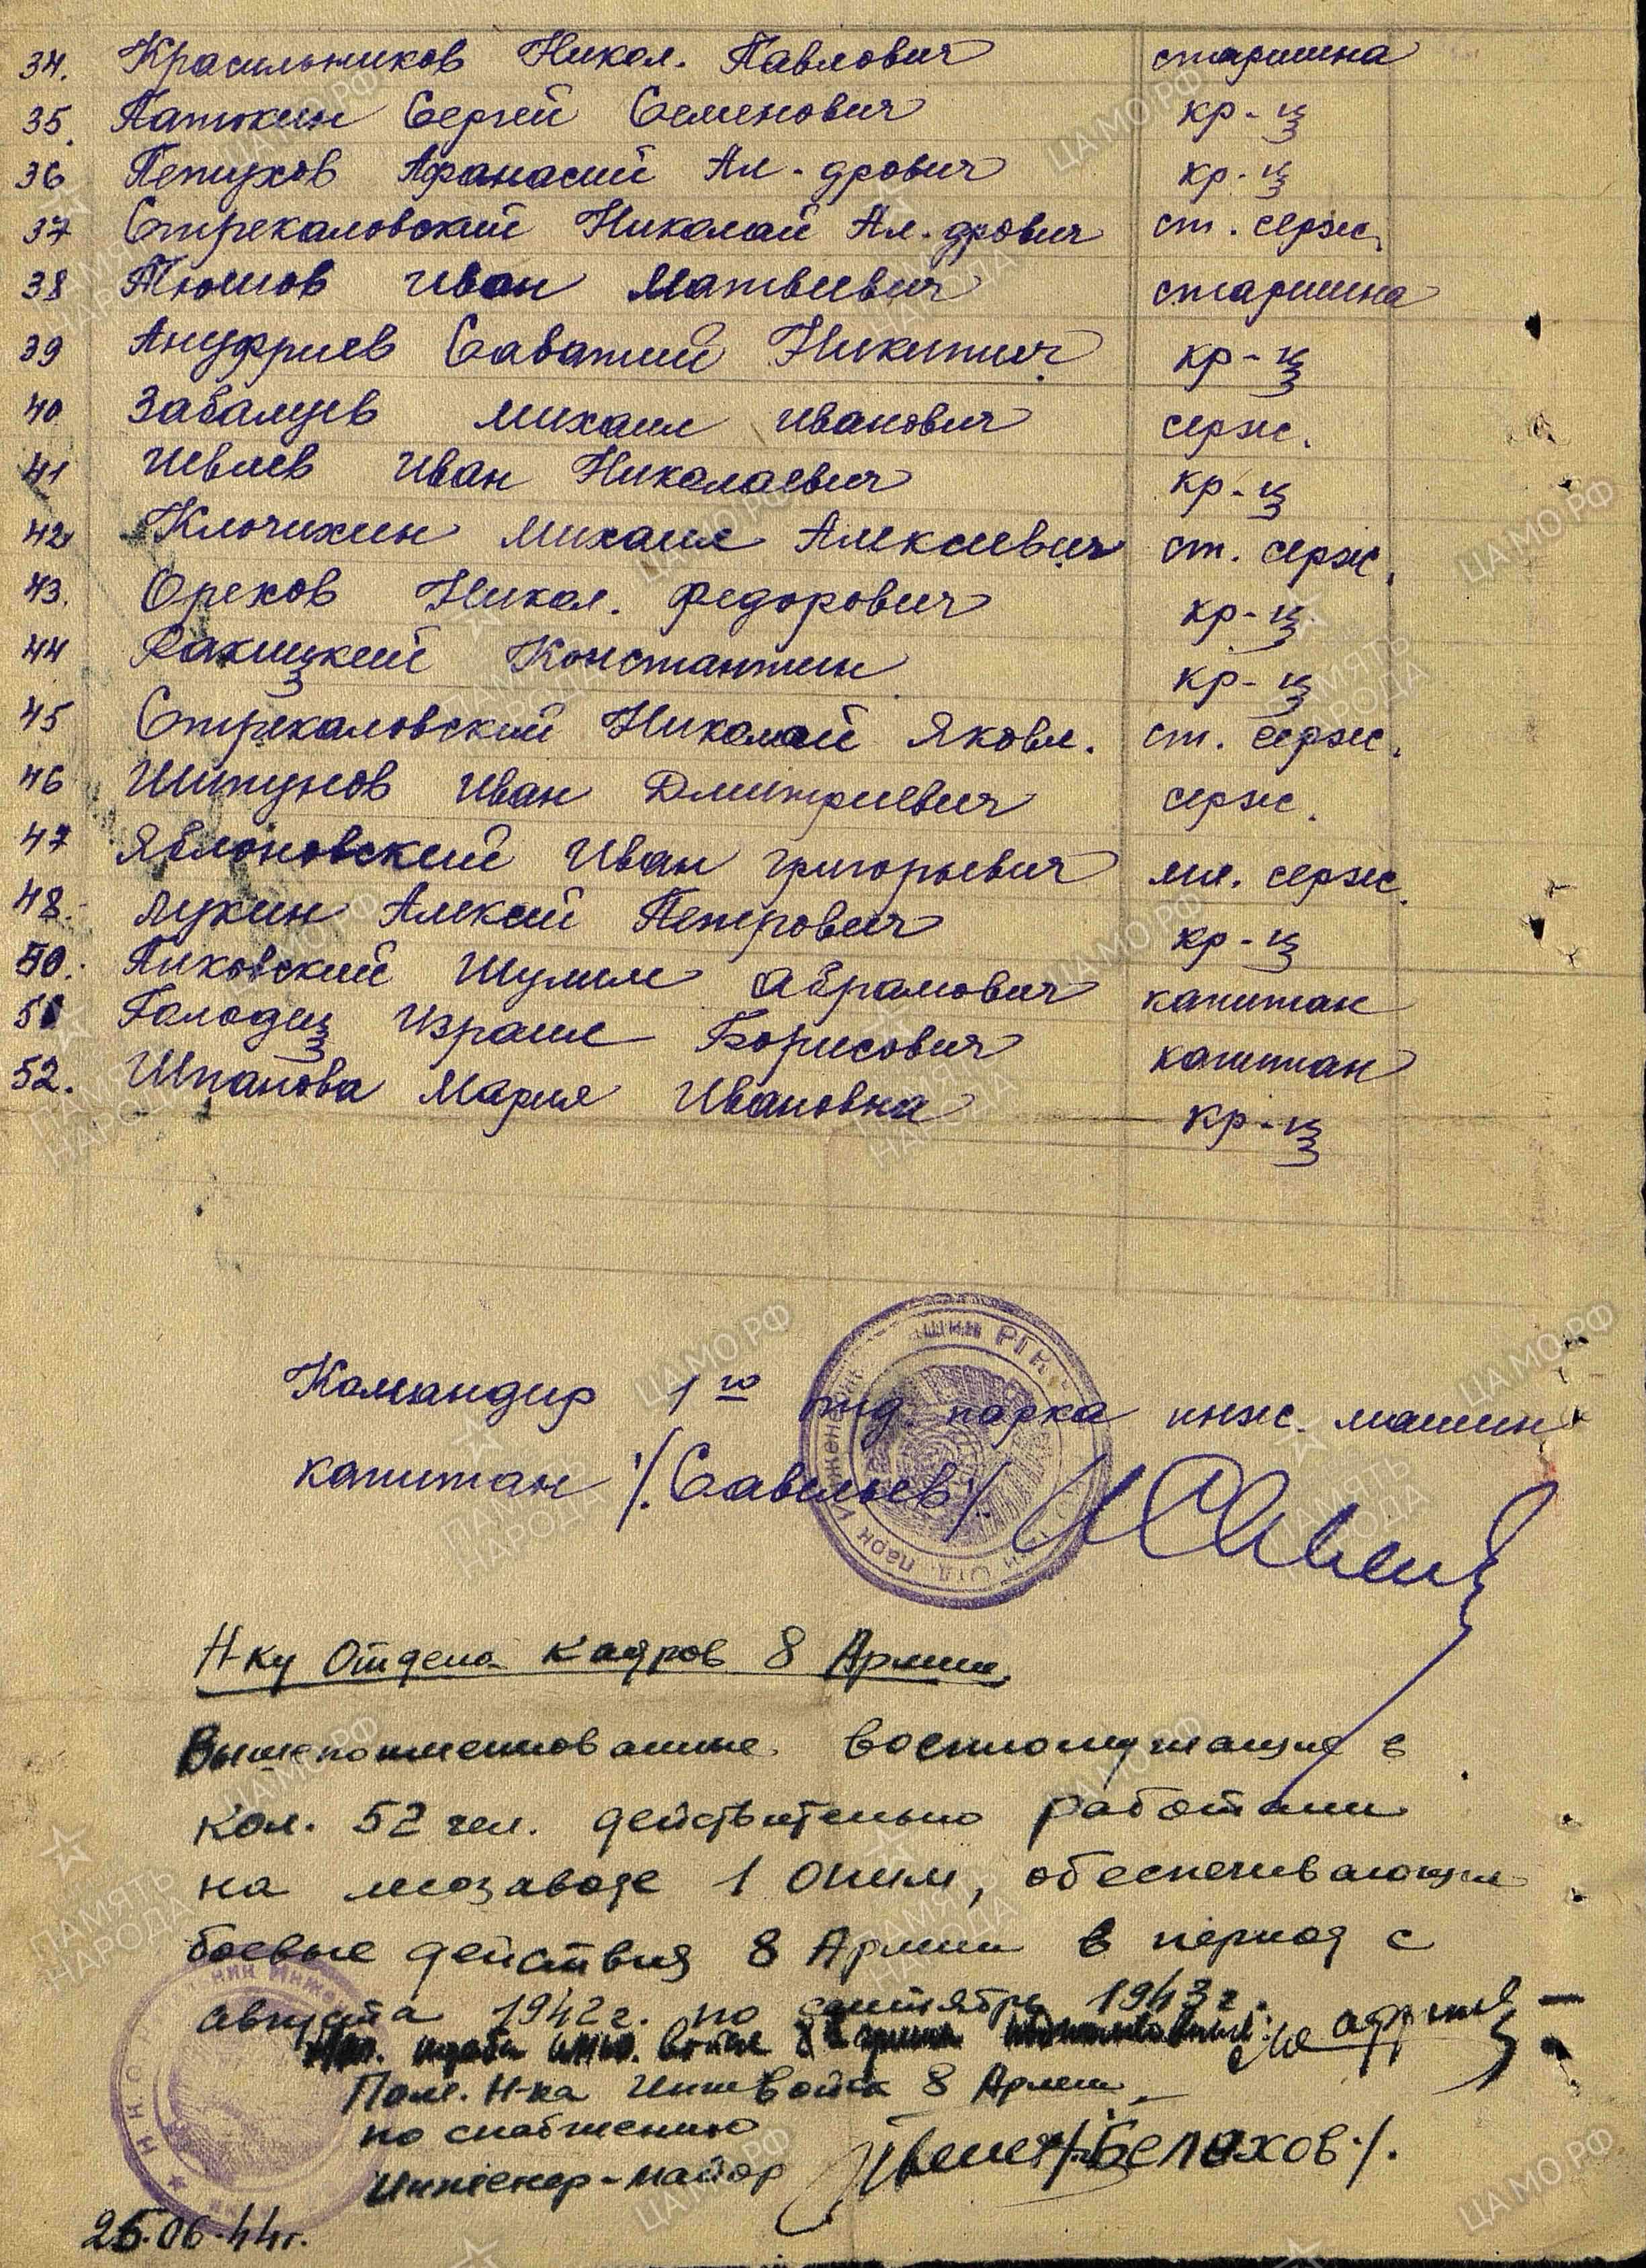 34. Красильников Никол. Павлович старшина
35. Патокин Сергей Семенович кр-ц
36 Петухов Афанасий Ал-дрович кр-ц
37 Стрекаловский Николай Ал-дрович ст. серж.
38 Тюшов Иван Матвеевич старшина
39 Ануфриев Саватий Никитич кр-ц
40 Забалуев Михаил Иванович серж.
41 Ивлев Иван Николаевич кр-ц
42 Клочихин Михаил Алексеевич ст. серж.
43. Орехов Никол. Федорович кр-ц
44 Ракицкий Константин кр-ц
45 Стрекаловский Николай Яковл. ст. серж.
46 Шипунов Иван Дмитриевич серж.
47 Яблоновский Иван Григорьевич мл. серж.
48. Лукин Алексей Петрович кр-ц
50. Пиковский Шулим Абрамович капитан
51 Голодец Израил Борисович капитан
52. Шпанова Мария Ивановна кр-ц
Командир 1го отд. парка инж. машин
капитан /Савельев/
Н-ку Отдела кадров 8 Армии.
Вышепоименованные военнослужащие в
кол. 52 чел. действительно работали
на лесозаводе 1 Опим, обеспечивающем
боевые действия 8 Армии в период с
августа 1942г. по сентябрь 1943г.
Пом. Н-ка Инжвойск 8 Армии
по снабжению
Инженер-майор /Белахов/.
25.06.44г.
ЦАМО.РФ
ПАМЯТЬ НАРОДА